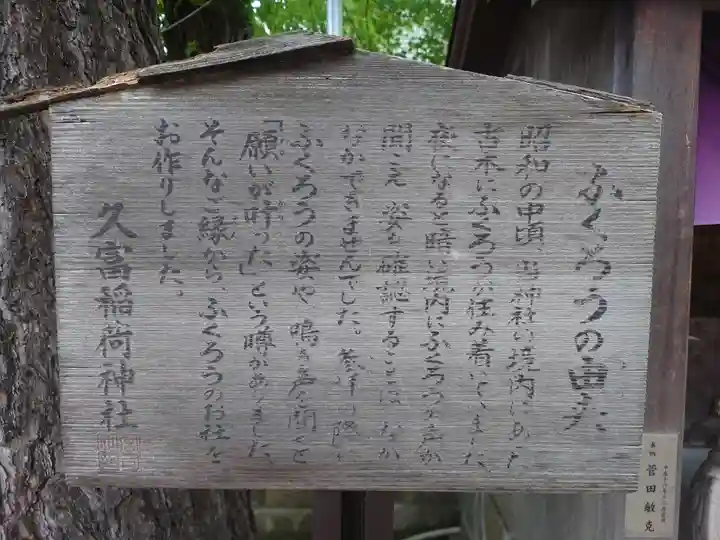 ふくろうの由来
昭和の中頃、当神社の境内にあった
古木にふくろうが住み着いていました。
夜になると暗い境内にふくろうの声が
聞こえ 姿を確認することは なか
なかできませんでした。参拝の際に
ふくろうの姿や 鳴き声を聞くと
「願いが叶った」という噂がありました。
そんなご縁から、ふくろうのお社を
お作りしました。
久富稲荷神社
菅田敏克